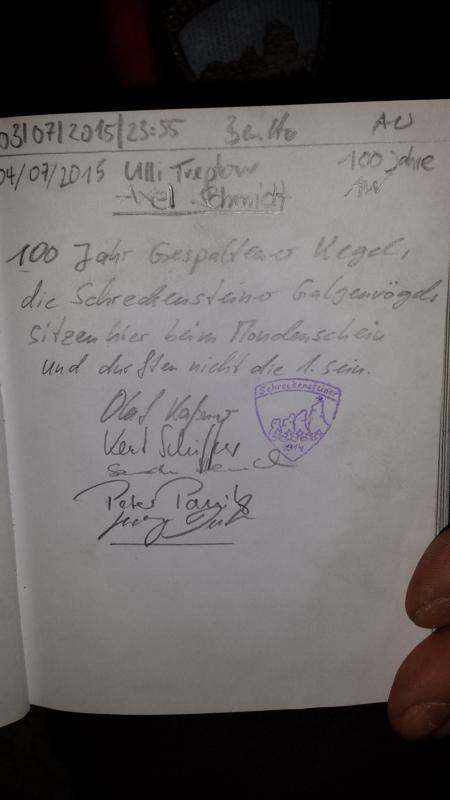 03/07/2015/23:55 Benno AW
04/07/2015 Ulli Treptow 100 Jahre
Axel Schmidt AW
100 Jahr Gespaltener Kegel,
die Schreckensteiner Galgenvögel,
sitzen hier beim Mondenschein
und durften nicht die 1. sein.
Olaf
Kert
Peter
Schreckensteiner
1914